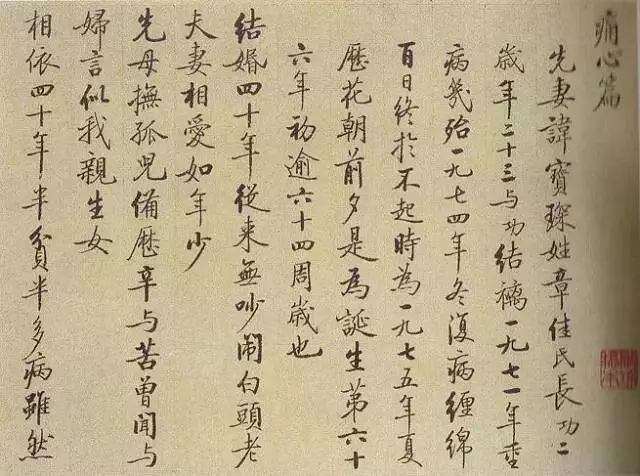 痛心篇
先妻諱寶琛姓章佳氏長功二
歲年二十三与功結褵一九七一年重
病幾殆一九七四年冬復病纏綿
百日終於不起時為一九七五年夏
歷花朝前夕是為誕生第六十
六年初逾六十四周歲也
結婚四十年從来無吵鬧白頭老
夫妻相愛如年少
先母撫孤児備歷辛与苦曾聞与
婦言似我親生女
相依四十年半貧半多病雖然